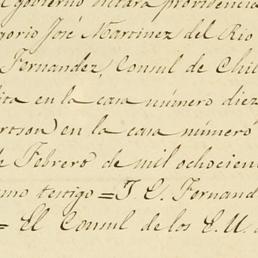 el gobierno dictará providencia
gorio José Martinez del Rio
Fernandez, Consul de Chil
ita en la casa número diez
rtson) en la casa número
de Febrero de mil ochocien
mo testigo = J C. Fernand
= El Consul de los E. U.